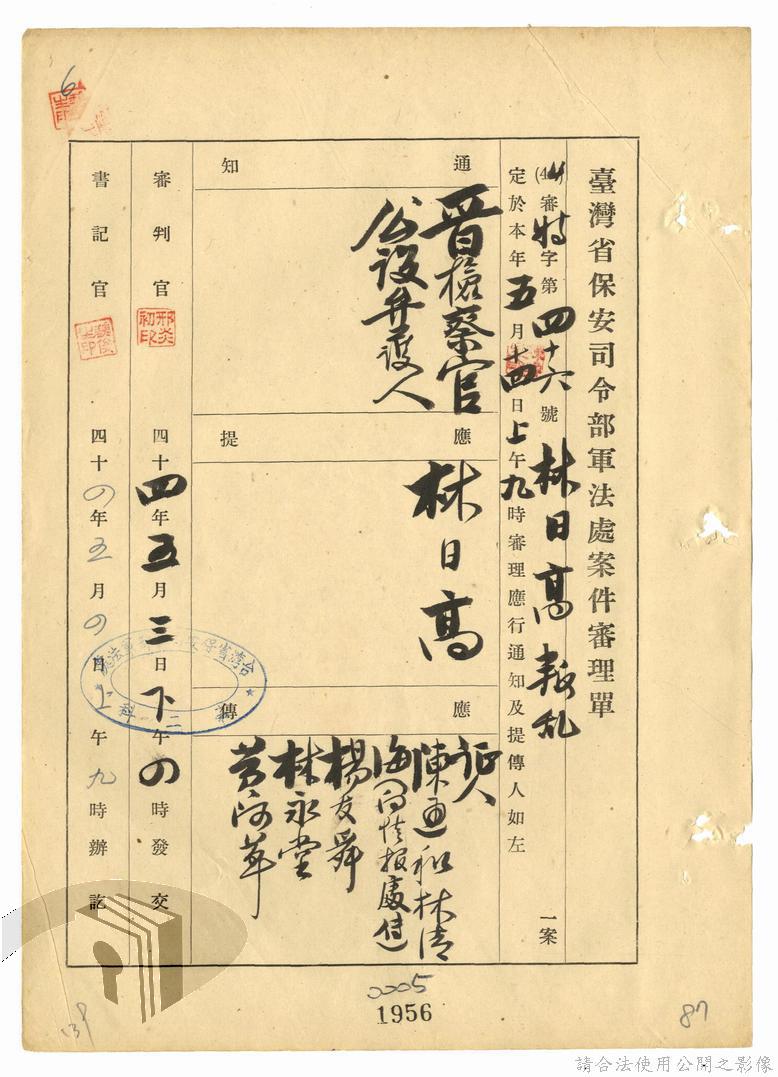 臺灣省保安司令部軍法處案件審理單
(44)審特字第四十六號林日高叛乱一案
定於本年五月十四日上午九時審理應行通知及提傳人如左
通知
晋檢察官
公設弁護人
應提
林日高
應傳
証人
陳通和 林清
楊友舜
林永堂
審判官 四十四年五月三日下午の時發交
邢炎初印
書記官 四十の年五月の日上午九時辦訖
0005
1956
87
6
請合法使用公開之影像